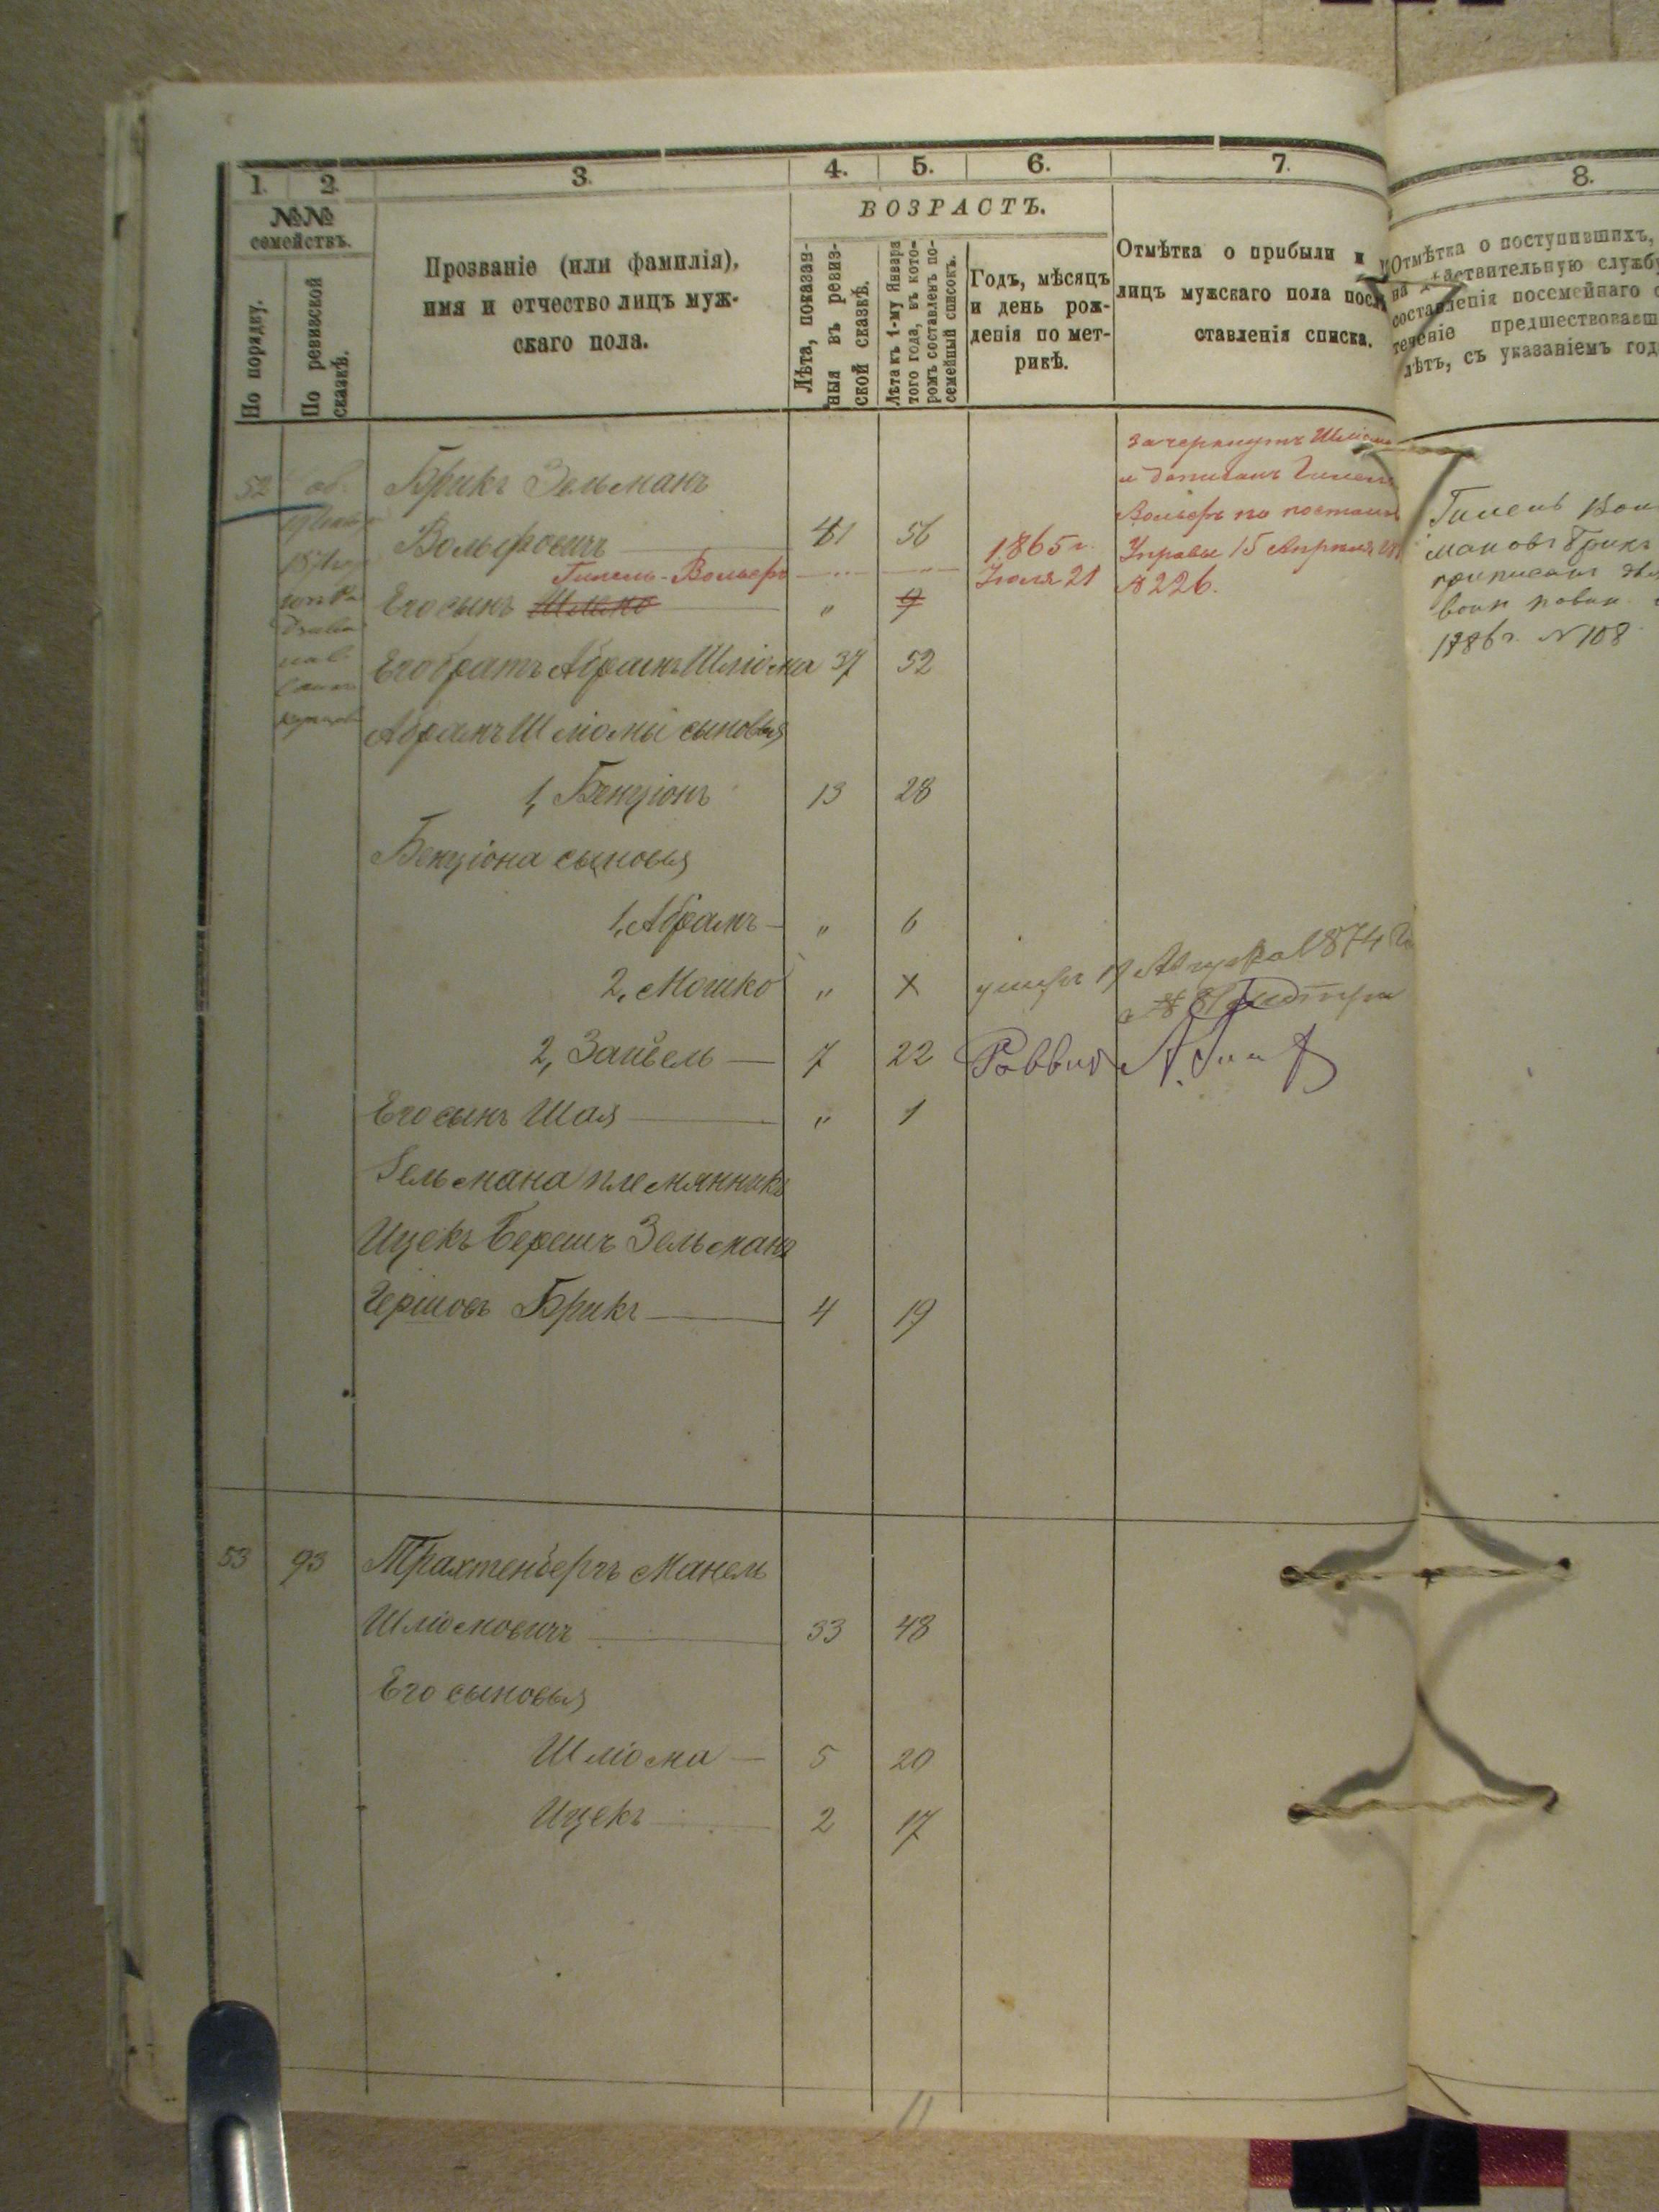 1. 2. 3. 4. 5. 6. 7. 8.
№№ семействъ.
По порядку.
По ревизской сказкѣ.
Прозваніе (или фамилія),
имя и отчество лицъ муж-
скаго пола.
ВОЗРАСТЪ.
Лѣта, показан-
ныя въ ревиз-
ской сказкѣ.
Лѣта къ 1-му Января
того года, въ кото-
ромъ составленъ по-
семейный списокъ.
Годъ, мѣсяцъ
и день рож-
денія по мет-
рикѣ.
Отмѣтка о прибыли и
лицъ мужскаго пола посл
ставленія списка.
Отмѣтка о поступившихъ,
на дѣйствительную службу
составленія посемейнаго
теченіе предшествовавш
лѣтъ, съ указаніемъ год
зачеркнутъ Шліома
и дописанъ Гилель
Вольфъ по постан
Управы 15 Апрѣля
№ 226.
52 Брикъ Зельманъ
Вольфовичъ 41 56
Гилель-Вольфъ 1865 г.
Іюля 21
Его сынъ Шлемо " 9
Его братъ Абрамъ Шліома 37 52
Абрамъ Шліомы сыновья
1, Бенціонъ 13 28
Бенціона сыновья
1, Абрамъ " 6
2, Мошко " умеръ 19 Августа 1874
2, Зайвель 7 22 Раввинъ
Его сынъ Шая " 1
Зельмана племянникъ
Ицекъ Берешъ Зельмана
Гершовъ Брикъ 4 19
Гилель Вол
мановъ Брикъ
приписанъ
воин повин
1886 г. № 108
53 93 Трахтенбергъ Манель
Шліомовичъ 33 48
Его сыновья
Шліома 5 20
Ицекъ 2 17
11